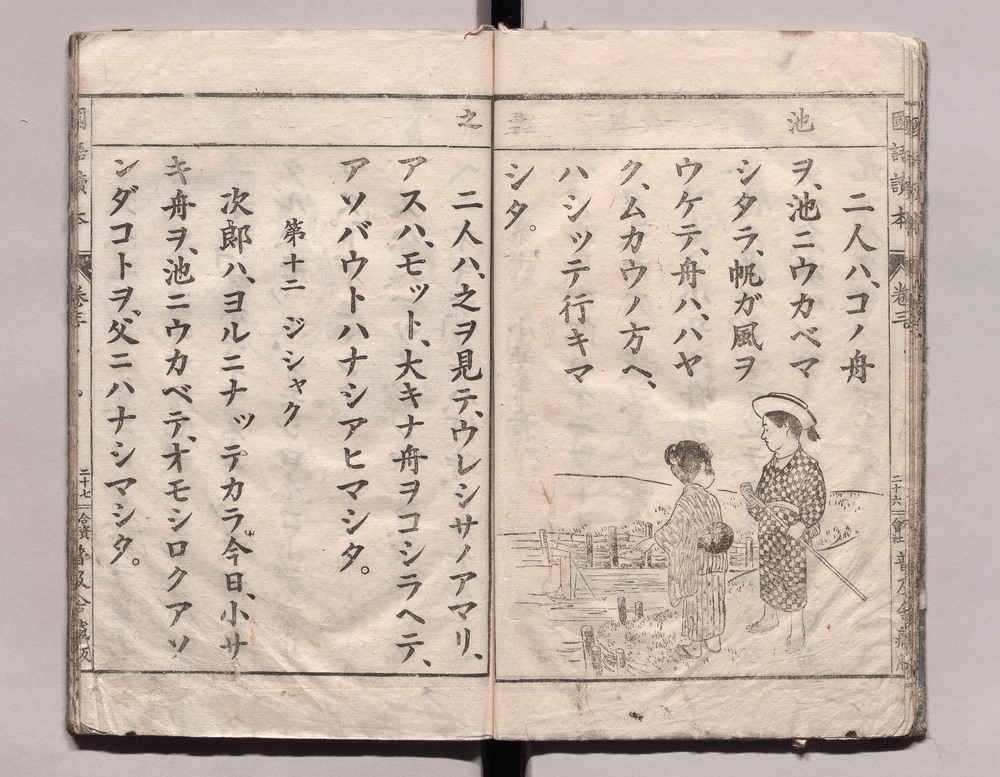 國語讀本
卷三
二十六
普及舍藏版
池
二人ハ、コノ舟
ヲ、池ニウカベマ
シタラ、帆ガ風ヲ
ウケテ、舟ハ、ハヤ
ク、ムカウノ方ヘ、
ハシッテ行キマ
シタ。
之
二人ハ、之ヲ見テ、ウレシサノアマリ、
アスハ、モット、大キナ舟ヲコシラヘテ、
アソバウトハナシアヒマシタ。
第十二 ジシャク
次郎ハ、ヨルニナッテカラ、今日、小サ
キ舟ヲ、池ニウカベテ、オモシロクアソ
ンダコトヲ、父ニハナシマシタ。
國語讀本
卷三
二十七
普及舍藏版